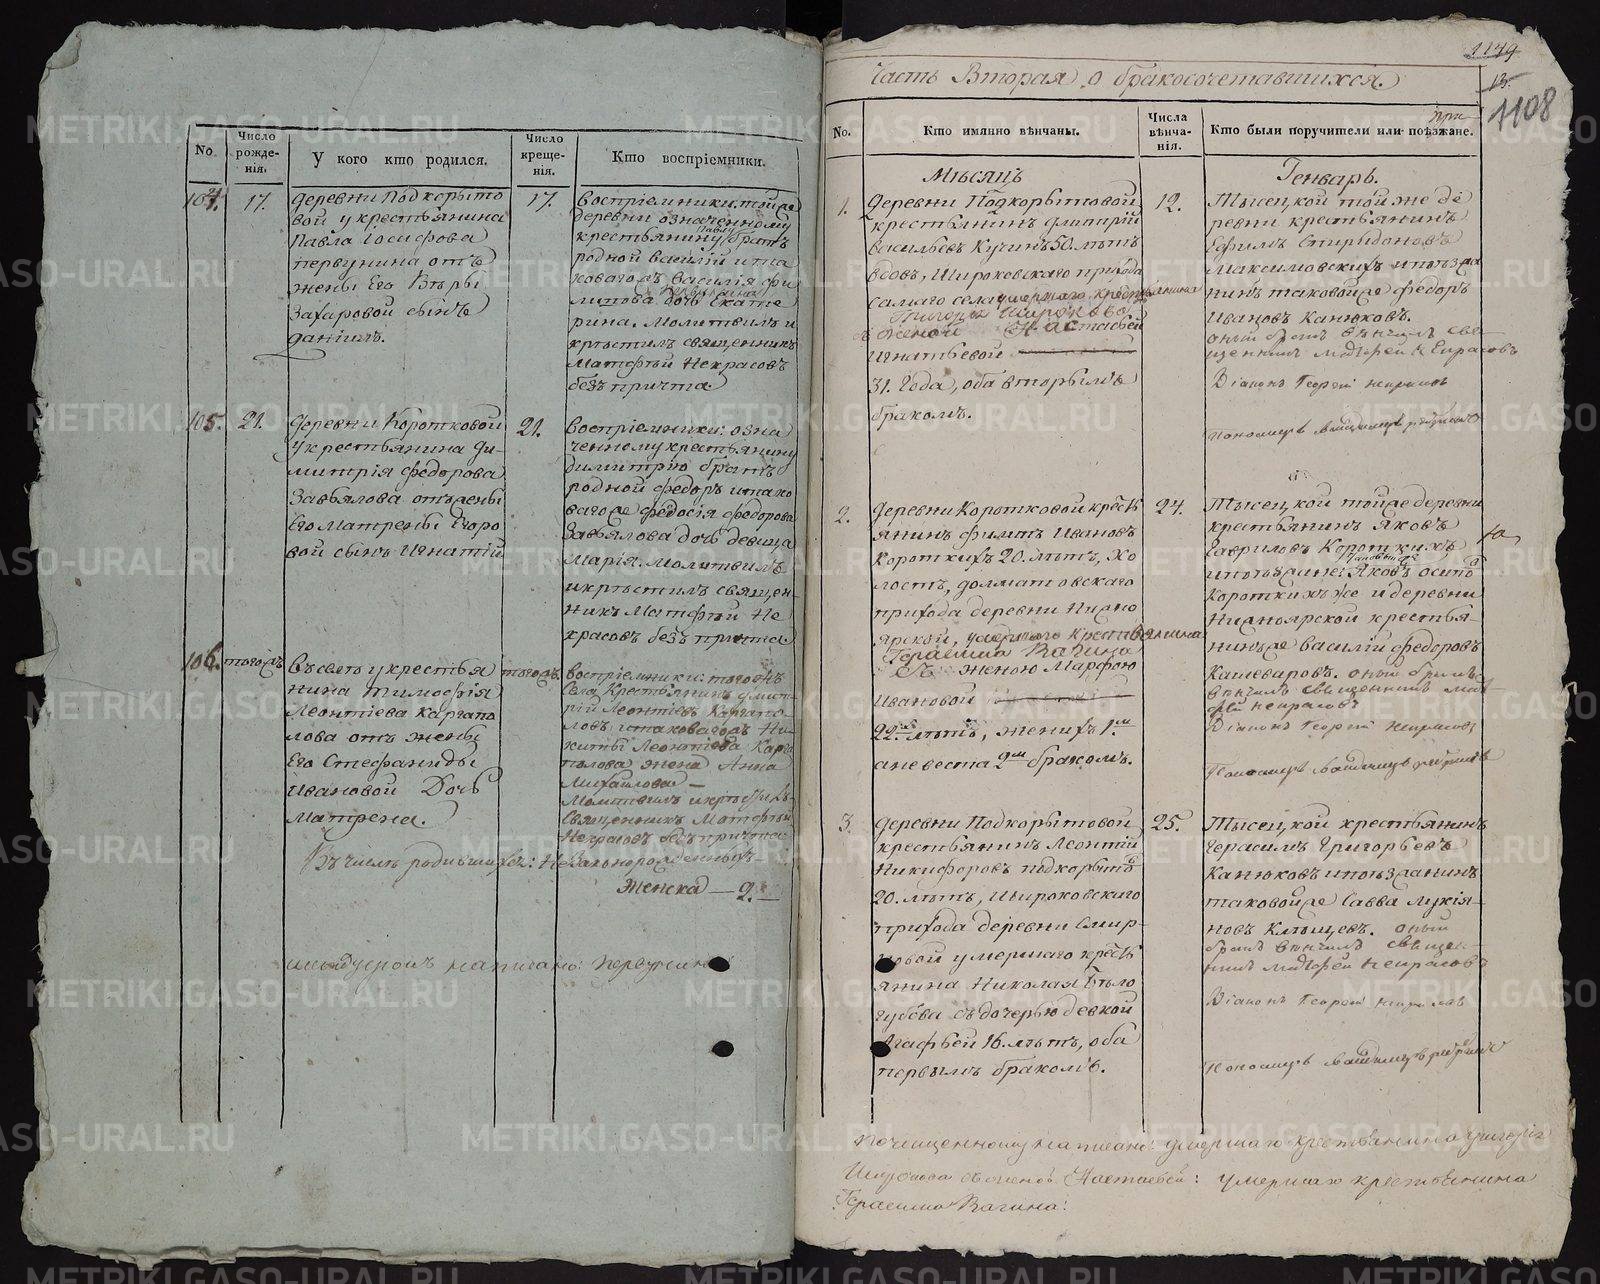 No.
Число рожде-нія.
У кого кто родился.
Число креще-нія.
Кто воспріемники.
104.
17.
деревни Подкорыто
вой у крестьянина
Павла Іосифова
первунина отъ
жены Его Вѣры
Захаровой сынъ
Даніилъ.
17.
Воспріемники: той же
деревни означенному
крестьянину Павлу братъ
родной Василій и та
коваго жъ Василія Фи
липова дочь Екате
рина. Молитвилъ и
крѣстилъ священникъ
Матфѣй Некрасовъ
безъ причта
105.
21.
Деревни Коротковой
у крестьянина Ди-
митрія Федорова
Завьялова отъ жены
Его Матрены Егоро
вой сынъ Игнатій
21.
Воспріемники: озна
ченному крестьянину
Димитрію братъ
родной Федоръ и тако
ваго же Федосія Федорова
Завьялова дочь девица
Марія. Молитвилъ
и крѣстилъ священ-
никъ Матфѣй Не
красовъ безъ причта
106.
тогожъ
Въ селѣ у крестья
нина Тимофѣя
Леонтіева Каргапо
лова отъ жены
Его Стефаниды
Ивановой Дочь
Матрена.
тогожъ
воспріемники: того жъ
Села Крестьянинъ Димит-
рій Леонтіевъ Каргапо-
ловъ и таковаго жъ Ни-
киты Леонтіева Карга
полова жена Анна
Михайлова —
Молитвилъ и крѣстилъ
Священникъ Матфѣй
Некрасовъ безъ причта
Въ числѣ родившихся: Незаконорожденныхъ —
Женска — 2. —
написано: первунина
1179
13
1108
Часть Вторая о бракосочетавшихся.
No.
Кто имянно вѣнчаны.
Числа вѣнча-нія.
Кто были поручители или поѣзжане.
при
Мѣсяцъ
Генварь.
1.
Деревни Подкорытовой
крестьянинъ Димитрій
Васильевъ Кучинъ 50. лѣтъ
вдовъ, Широковскаго прихода
самаго села умершаго крестьянина
Григорья Широкова
съ женой Настасьей
Игнатьевой
31. года, оба вторымъ
бракомъ.
12.
Тысецкой той же де
ревни крестьянинъ
Ефимъ Спиридоновъ
Максимовскихъ и поѣзжа
нинъ таковой же Федоръ
Ивановъ Канюковъ.
оный бракъ вѣнчалъ свя-
щенникъ Матфей Некрасовъ
Діаконъ Георгій Некрасовъ
Пономарь
2.
Деревни Коротковой кресть
янинъ Филипъ Ивановъ
Короткихъ 20. лѣтъ, хо
лостъ, Долматовскаго
прихода деревни Нижно
ярской, умершаго Крестьянина
Герасима Вагина
съ женою Марфою
Ивановой
22. лѣтъ, женихъ 1.м
а невеста 2м бракомъ.
24.
Тысецкой той же деревни
крестьянинъ Яковъ
Гавриловъ Короткихъ
и поѣзжане: таковый же Яковъ Осипов
Короткихъ же и деревни
Нижноярской крестья-
нинъ же Василій Федоровъ
Кашеваровъ. оный бракъ
вѣнчалъ священникъ Мат
фѣй Некрасовъ
Діаконъ Георгій Некрасовъ
Пономарь
3.
Деревни Подкорытовой
крестьянинъ Леонтій
Никифоровъ Подкорытовъ
20. лѣтъ, Широковскаго
прихода деревни Смир-
новой умершаго кресть
янина Николая Бѣло
губова съ дочерью девкой
Агафьей 16. лѣтъ, оба
первымъ бракомъ.
25.
Тысецкой крестьянинъ
Герасимъ Григорьевъ
Канюковъ и поѣзжанинъ
таковой же Савва Лукія-
новъ Клещевъ. оный
бракъ вѣнчалъ священ-
никъ Матфей Некрасовъ
Діаконъ Георгій Некрасовъ
Пономарь
По чищенному написано: умершаго крестьянина Григорія
Широкова съ женой Настасьей: умершаго крестьянина
Герасима Вагина:
METRIKI.GASO-URAL.RU